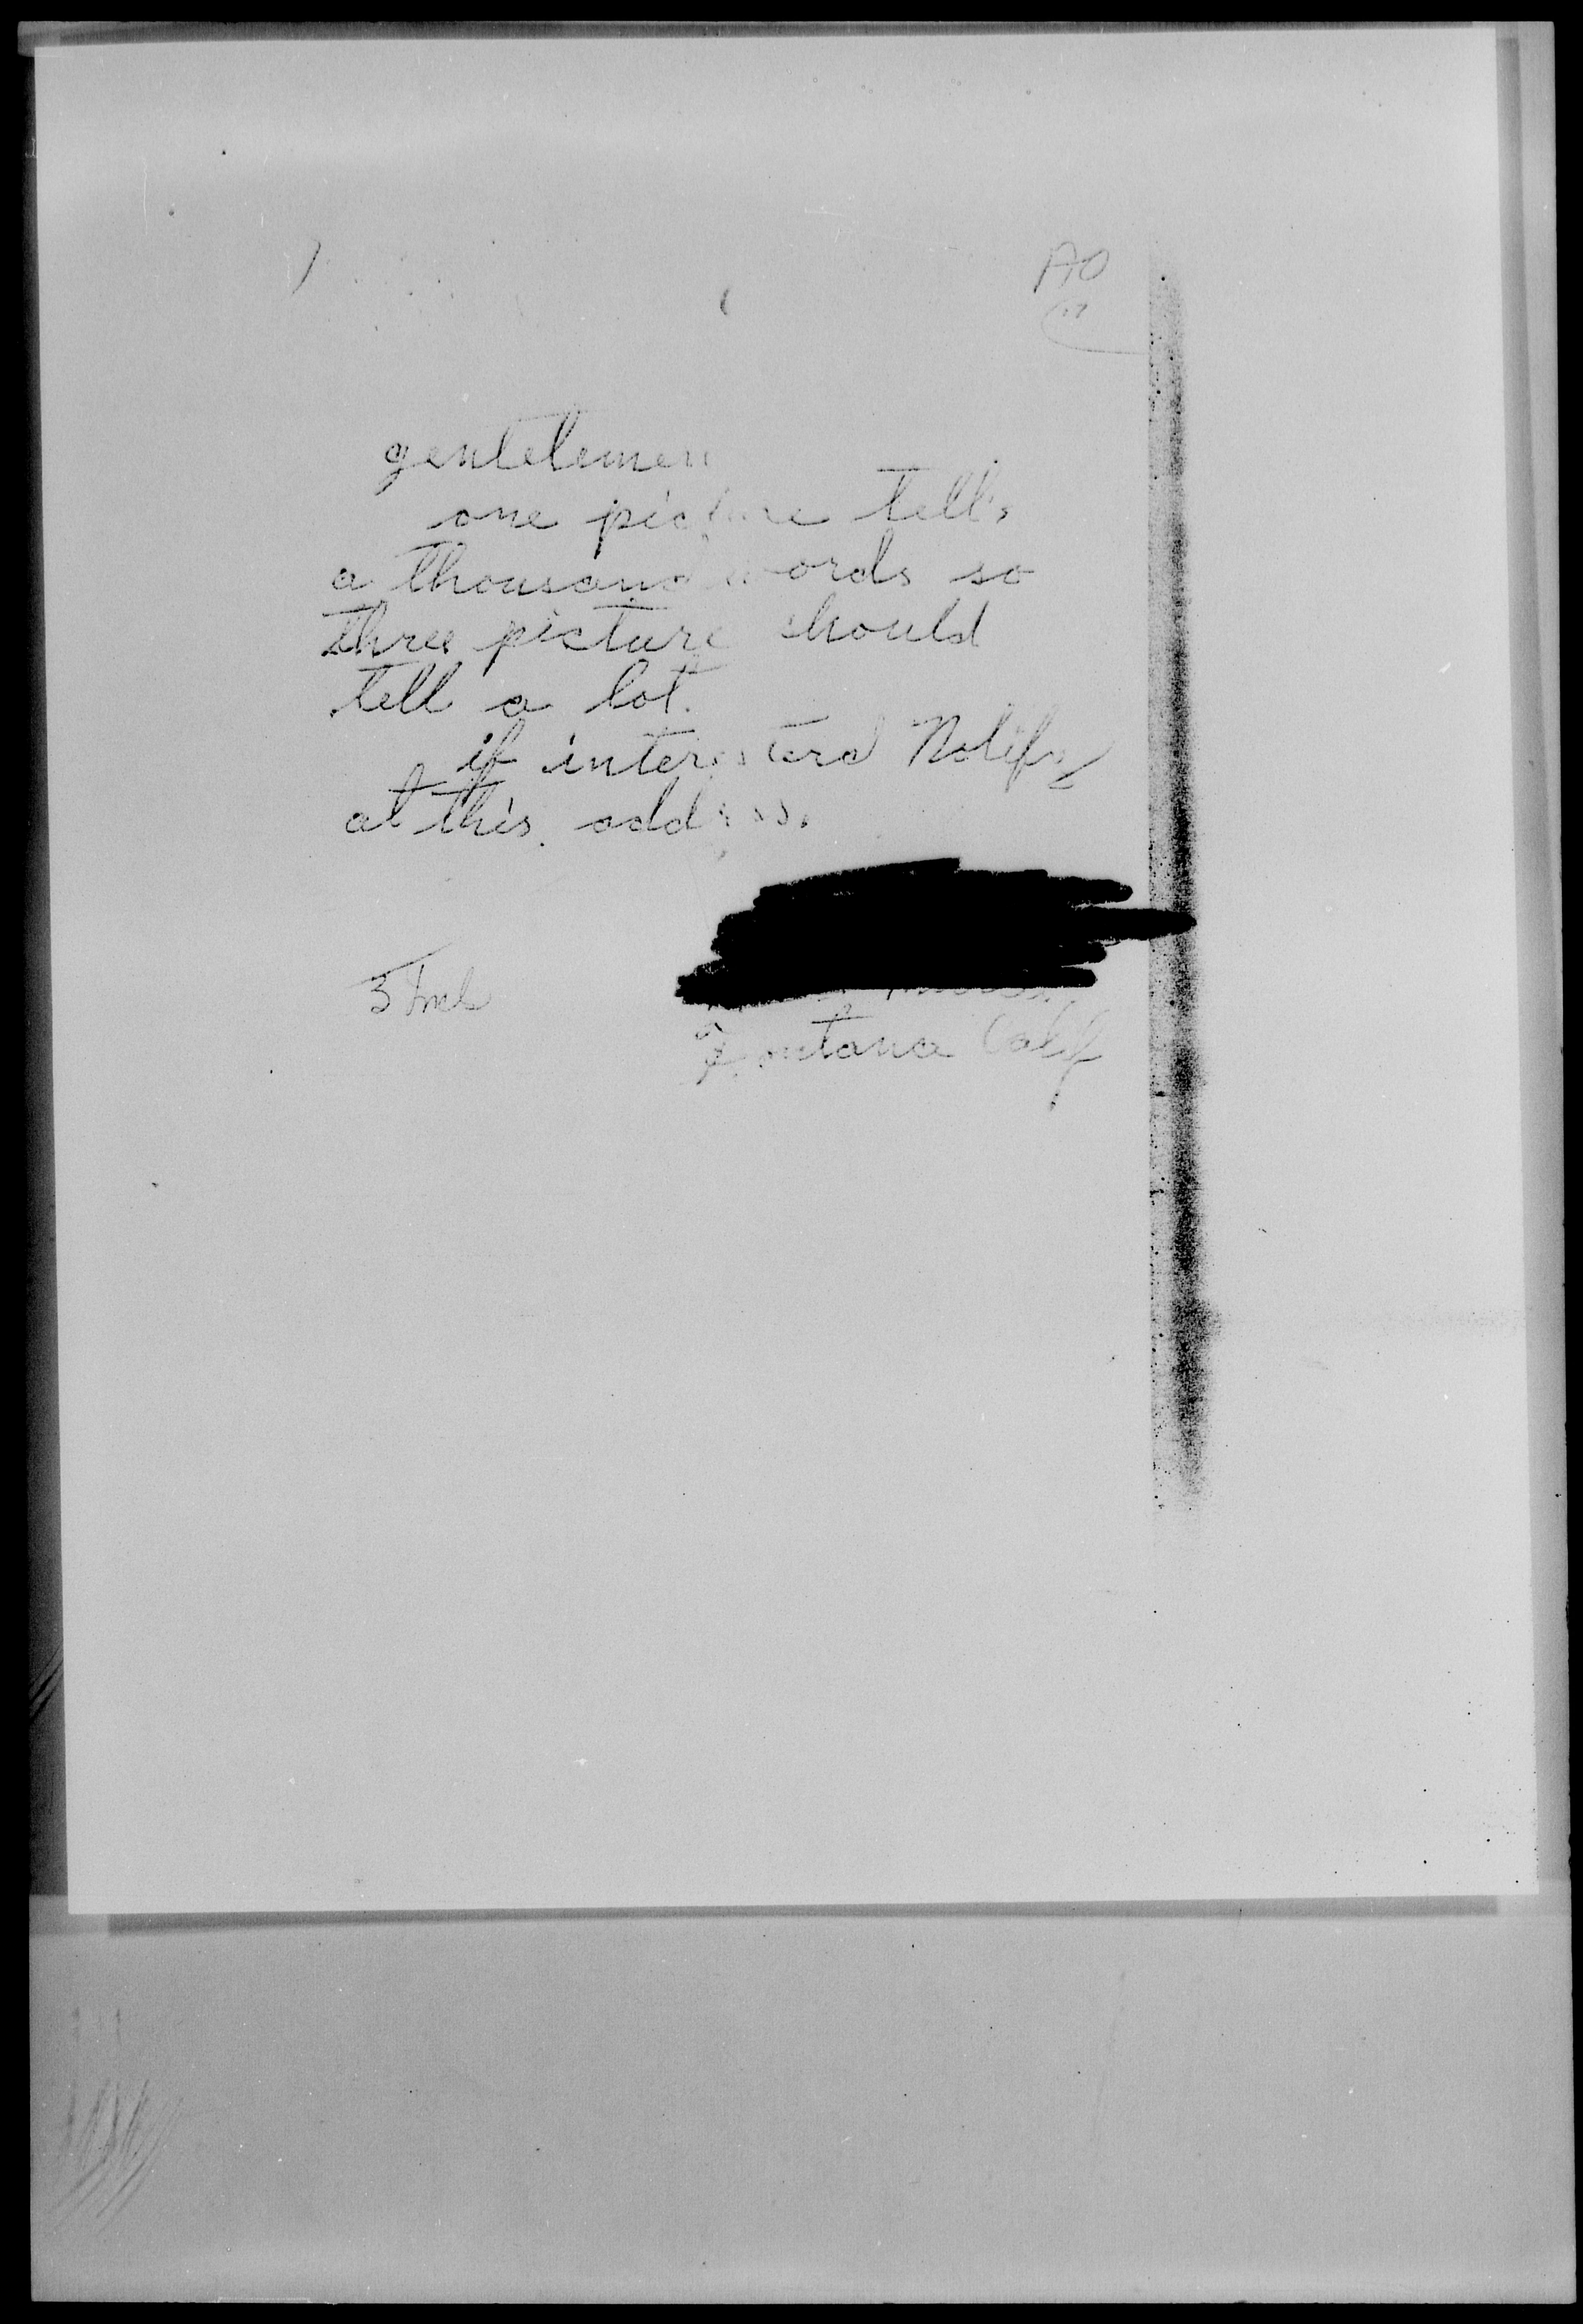 AO
gentelemen
one picture tell's
a thousand words so
three picture should
tell a lot.
if interesterd Notify
at this address.
3 Incl
Fontana Calif